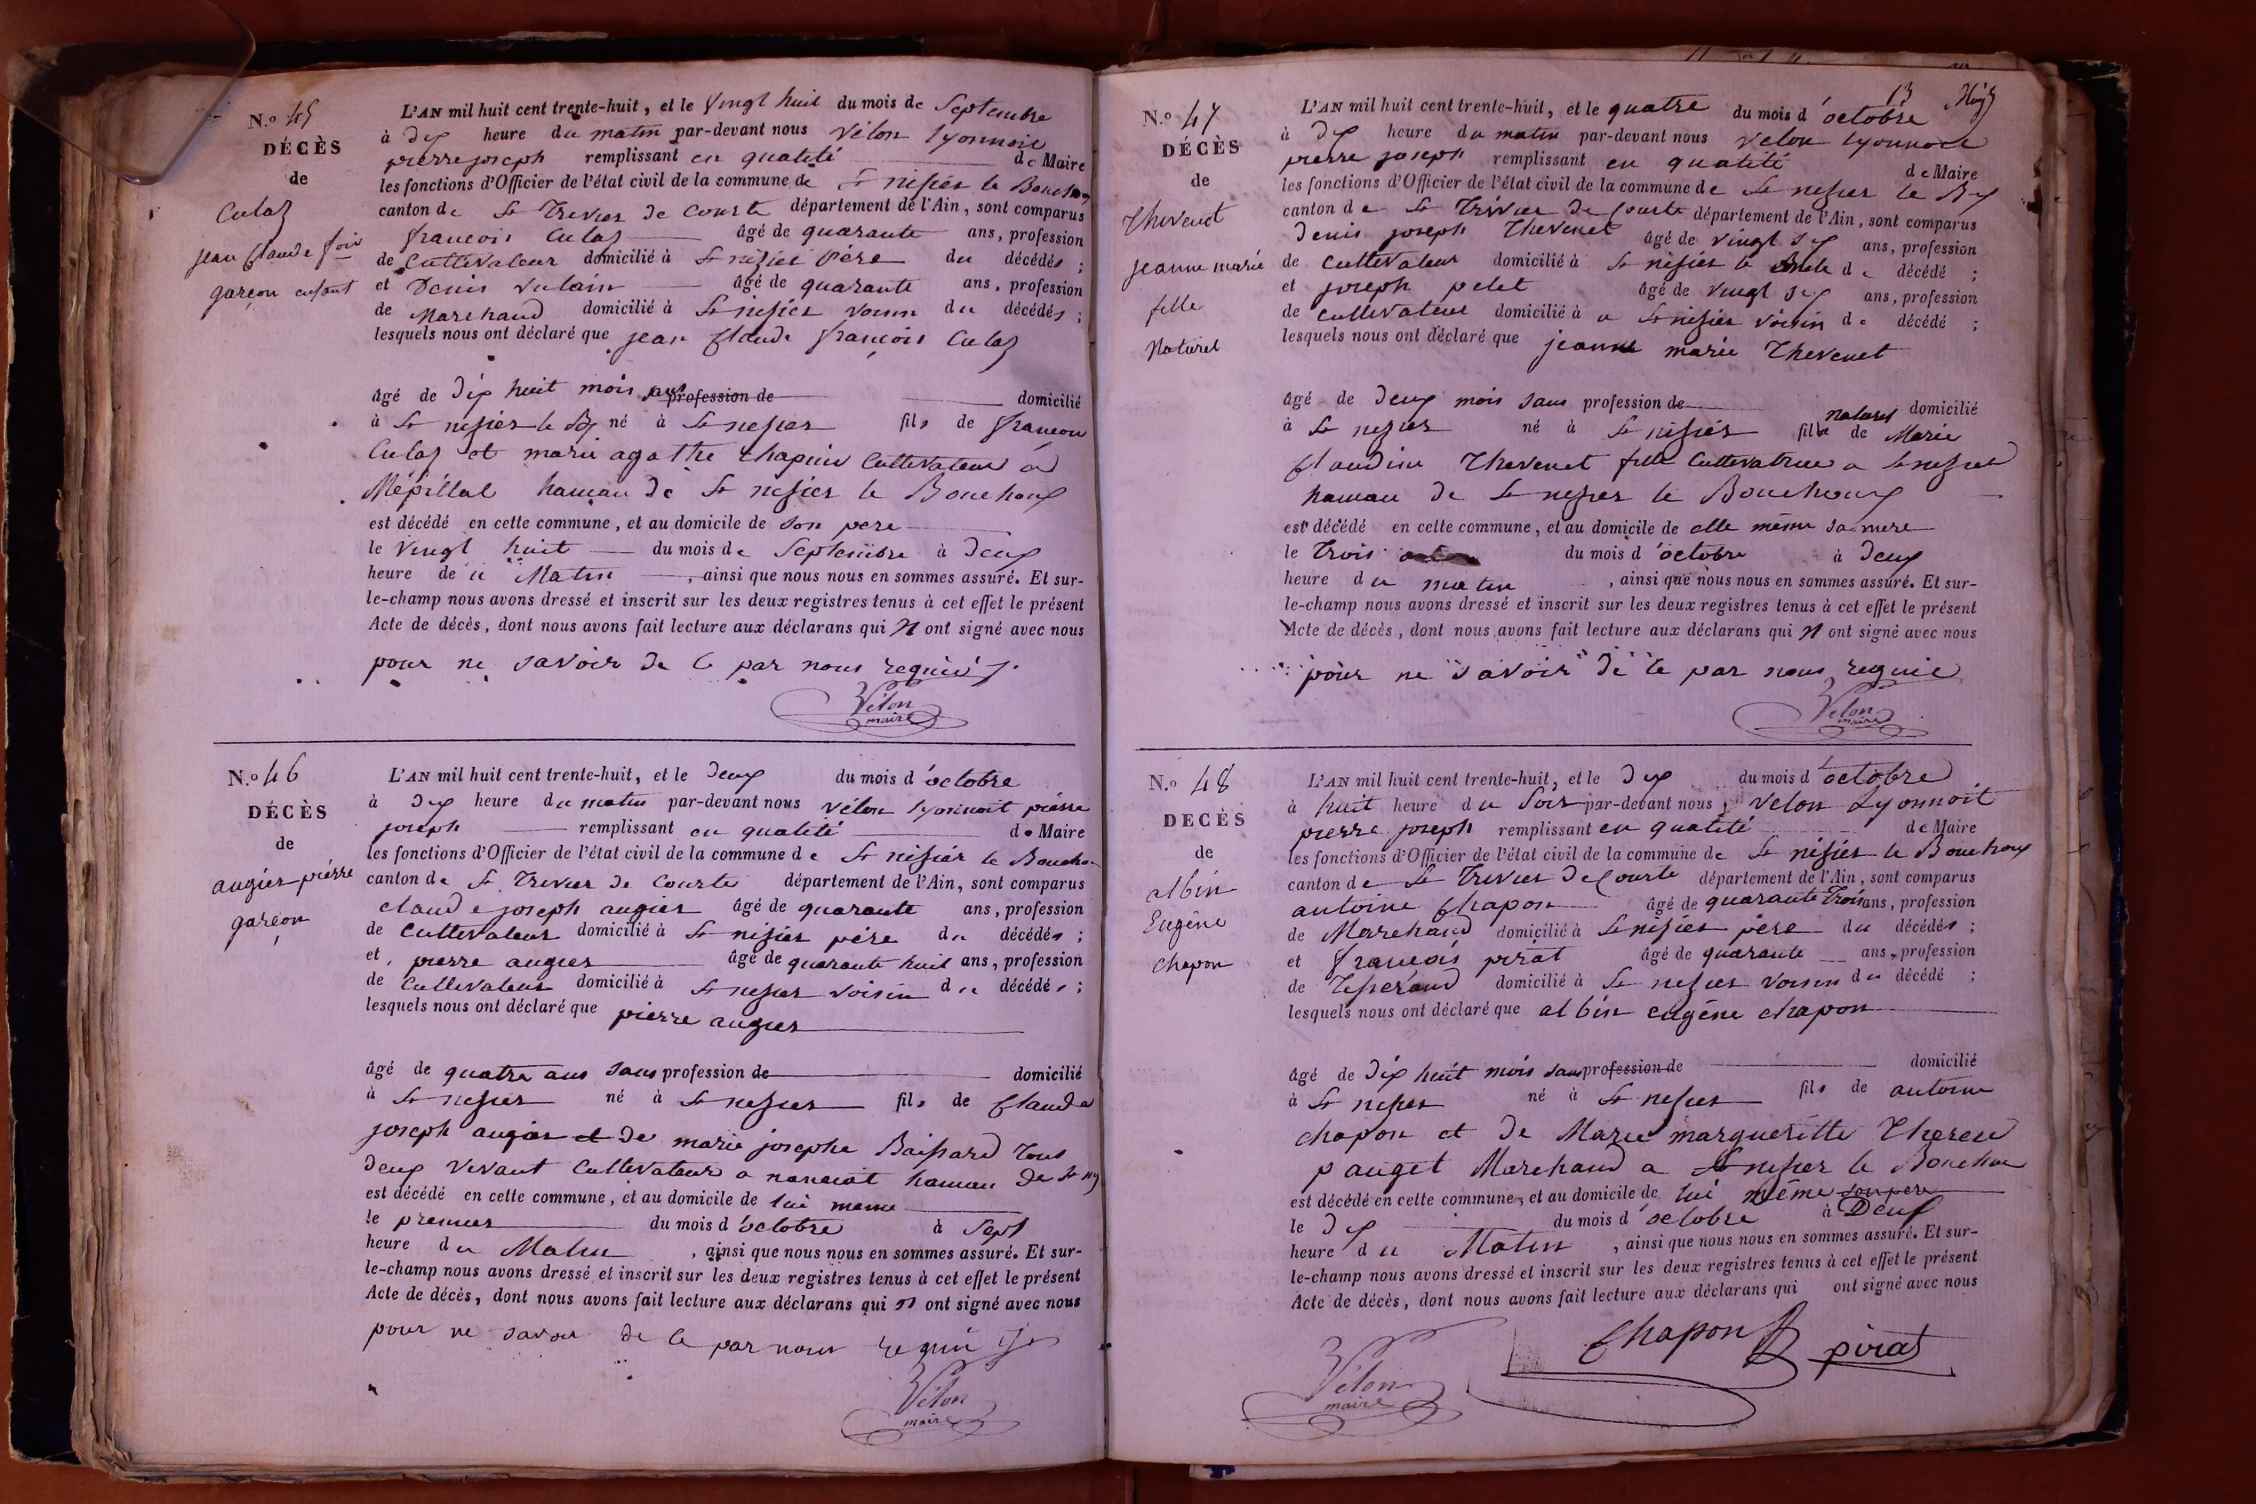 N.o 45
DÉCÈS
de
Culaz
jean claude fois
garçon enfant
L'AN mil huit cent trente-huit, et le vingt huit du mois de Septembre
à dix heure du matin par-devant nous Vélon lyonnoit
pierre joseph remplissant en qualité de Maire
les fonctions d'Officier de l'état civil de la commune de St nisier le Bouchoux
canton de St Trivier de Courte département de l'Ain, sont comparus
francois Culaz âgé de quarante ans, profession
de Cultivateur domicilié à St nizier Père du décédés ;
et Denis vulain âgé de quarante ans, profession
de Marchand domicilié à St nisier voisin du décédés ;
lesquels nous ont déclaré que jean claude francois Culaz
âgé de dix huit mois sans profession de domicilié
à St nisier le Bx né à St nisier fils de françois
Culaz et marie agathe chapuis Cultivateur à
Mépillat hameau de St nisier le Bouchoux
est décédé en cette commune, et au domicile de son pere
le vingt huit du mois de Septembre à deux
heure de u Matin, ainsi que nous nous en sommes assuré. Et sur-
le-champ nous avons dressé et inscrit sur les deux registres tenus à cet effet le présent
Acte de décès, dont nous avons fait lecture aux déclarans qui n ont signé avec nous
pour ne savoir de ce par nous requis
Vélon
maire
N.o 46
DÉCÈS
de
augier pierre
garçon
L'AN mil huit cent trente-huit, et le deux du mois d'octobre
à dix heure du matin par-devant nous vélon lyonnoit pierre
joseph remplissant en qualité de Maire
les fonctions d'Officier de l'état civil de la commune de St nisier le Bouchou
canton de St Trivier de Courte département de l'Ain, sont comparus
claude joseph augier âgé de quarante ans, profession
de Cultivateur domicilié à St nisier père du décédés ;
et pierre augier âgé de quarante huit ans, profession
de Cultivateur domicilié à St nisier voisin du décédés ;
lesquels nous ont déclaré que pierre augier
âgé de quatre ans sans profession de domicilié
à St nisier né à St nisier fils de Claude
joseph augier et de marie josephe Baissard tous
deux vivant Cultivateur a nanciat hameau de St
est décédé en cette commune, et au domicile de lui meme
le premier du mois d'octobre à sept
heure du Matin, ainsi que nous nous en sommes assuré. Et sur-
le-champ nous avons dressé et inscrit sur les deux registres tenus à cet effet le présent
Acte de décès, dont nous avons fait lecture aux déclarans qui n ont signé avec nous
pour ne savoir de ce par nous requis
Vélon
maire
13
N.o 47
DÉCÈS
de
Thevenet
jeanne marie
fille
Naturel
L'AN mil huit cent trente-huit, et le quatre du mois d'octobre
à dix heure du matin par-devant nous Velon lyonnoit
pierre joseph remplissant en qualité de Maire
les fonctions d'Officier de l'état civil de la commune de St nisier le Bx
canton de St Trivier de Courte département de l'Ain, sont comparus
Denis joseph Thevenet âgé de vingt six ans, profession
de Cultivateur domicilié à St nisier le de décédé ;
et joseph pelet âgé de vingt six ans, profession
de Cultivateur domicilié à a St nisier voisin de décédé ;
lesquels nous ont déclaré que jeanne marie Thevenet
âgé de deux mois sans profession de domicilié
à St nisier né à St nisier fille naturel de Marie
Claudine Thevenet fille Cultivatrice a St nisier
hameau de St nisier le Bouchoux
est décédé en cette commune, et au domicile de elle même sa mere
le trois du mois d'octobre à deux
heure du matin, ainsi que nous nous en sommes assuré. Et sur-
le-champ nous avons dressé et inscrit sur les deux registres tenus à cet effet le présent
Acte de décès, dont nous avons fait lecture aux déclarans qui n ont signé avec nous
pour ne savoir de ce par nous requie
Velon
maire
N.o 48
DÉCÈS
de
albin
Eugêne
chapon
L'AN mil huit cent trente-huit, et le dix du mois d'octobre
à huit heure du soir par-devant nous, Velon Lyonnoit
pierre joseph remplissant en qualité de Maire
les fonctions d'Officier de l'état civil de la commune de St nisier le Bouchoux
canton de St Trivier de Courte département de l'Ain, sont comparus
antoine Chapon âgé de quarante trois ans, profession
de Marchand domicilié à St nisier père du décédés ;
et françois pirat âgé de quarante ans, profession
de Tisserand domicilié à St nisier voisin du décédé ;
lesquels nous ont déclaré que albin eugêne chapon
âgé de dix huit mois sans profession de domicilié
à St nisier né à St nisier fils de antoine
chapon et de Marie margueritte Therese
pauget Marchand a St nisier le Bouchou
est décédé en cette commune, et au domicile de lui même son pere
le dix du mois d'octobre à Deux
heure du Matin, ainsi que nous nous en sommes assuré. Et sur-
le-champ nous avons dressé et inscrit sur les deux registres tenus à cet effet le présent
Acte de décès, dont nous avons fait lecture aux déclarans qui ont signé avec nous
Chapon pirat
Vélon
maire